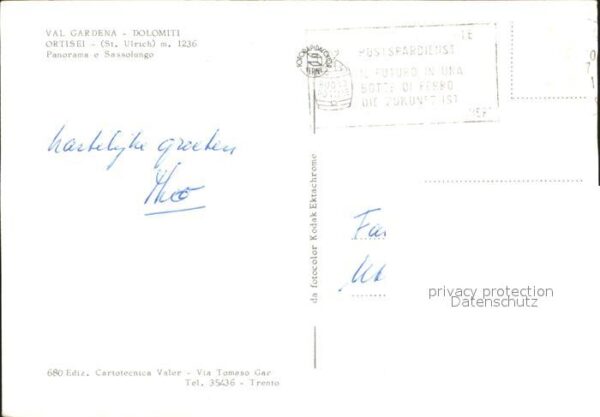 VAL GARDENA - DOLOMITI
ORTISEI - (St. Ulrich) m. 1236
Panorama e Sassolungo
POSTSPARDIENST
IL FUTURO IN UNA
BOTTE DI FERRO
DIE ZUKUNFT IST
hartelijke groeten
Theo
da fotocolor Kodak Ektachrome
Fa
privacy protection
Datenschutz
680 Ediz. Cartotecnica Valer - Via Tomaso Gar
Tel. 35436 - Trento